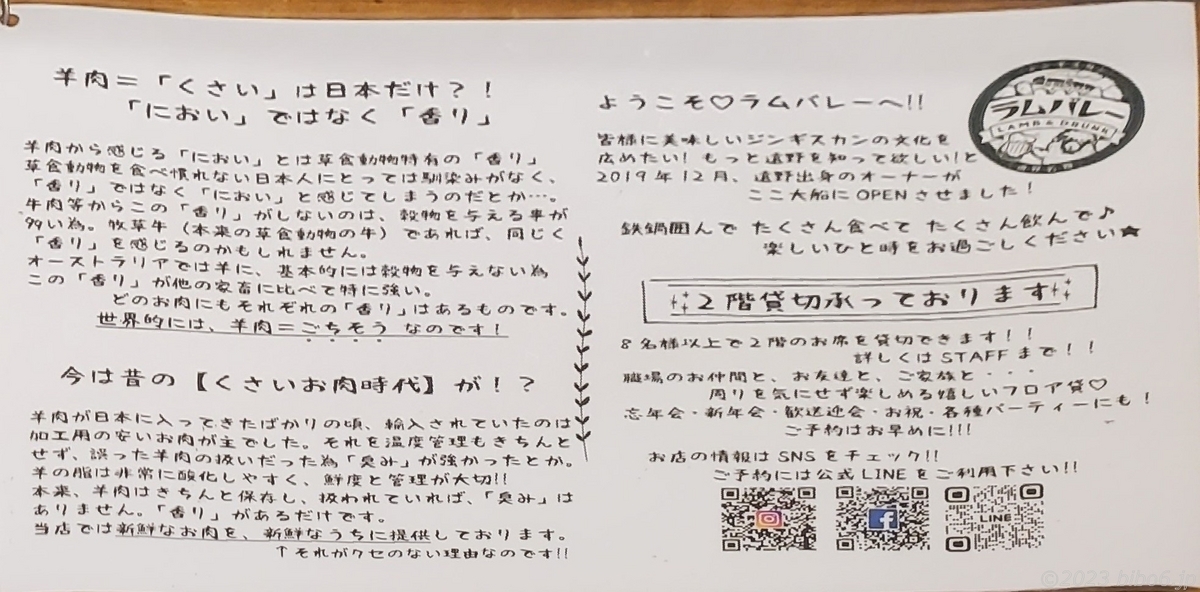 羊肉=「くさい」は日本だけ?!
「におい」ではなく「香り」
羊肉から感じる「におい」とは草食動物特有の「香り」
草食動物を食べ慣れない日本人にとっては馴染みがなく、
「香り」ではなく「におい」と感じてしまうのだとか…。
牛肉等からこの「香り」がしないのは、穀物を与える事が
多い為。牧草牛(本来の草食動物の牛)であれば、同じく
「香り」を感じるのかもしれません。
オーストラリアでは羊に、基本的には穀物を与えない為
この「香り」が他の家畜に比べて特に強い。
どのお肉にもそれぞれの「香り」はあるものです。
世界的には、羊肉=ごちそう なのです!
今は昔の【くさいお肉時代】が!?
羊肉が日本に入ってきたばかりの頃、輸入されていたのは
加工用の安いお肉が主でした。それを温度管理もきちんと
せず、誤った羊肉の扱いだった為「臭み」が強かったとか。
羊の脂は非常に酸化しやすく、鮮度と管理が大切!!
本来、羊肉はきちんと保存し、扱われていれば、「臭み」は
ありません。「香り」があるだけです。
当店では新鮮なお肉を、新鮮なうちに提供しております。
↑それがクセのない理由なのです!!
ようこそ♡ラムバレーへ!!
ラムバレー
LAMB & DRUNK
皆様に美味しいジンギスカンの文化を
広めたい!もっと遠野を知って欲しい!と
2019年12月、遠野出身のオーナーが
ここ大船にOPENさせました!
鉄鍋囲んで たくさん食べて たくさん飲んで♪
楽しいひと時をお過ごしください★
2階貸切承っております
8名様以上で2階のお席を貸切できます!!
詳しくはSTAFFまで!!
職場のお仲間と、お友達と、ご家族と・・・
周りを気にせず楽しめる嬉しいフロア貸♡
忘年会・新年会・歓送迎会・お祝・各種パーティーにも!
ご予約はお早めに!!!
お店の情報はSNSをチェック!!
ご予約には公式LINEをご利用下さい!!
LINE
©2023 hibo6.jp